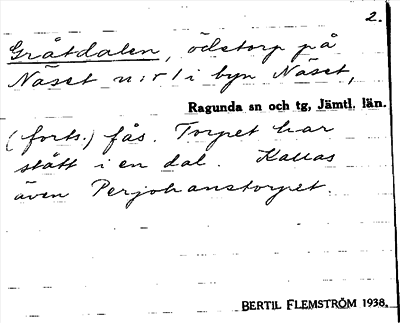 2.
Gråtdalen, ödetorp på
Näset n:r 1 i byn Näset,
Ragunda sn och tg, Jämtl. län.
(forts.) fås. Torpet har
stått i en dal. Kallas
även Perjohanstorpet.
BERTIL FLEMSTRÖM 1938.